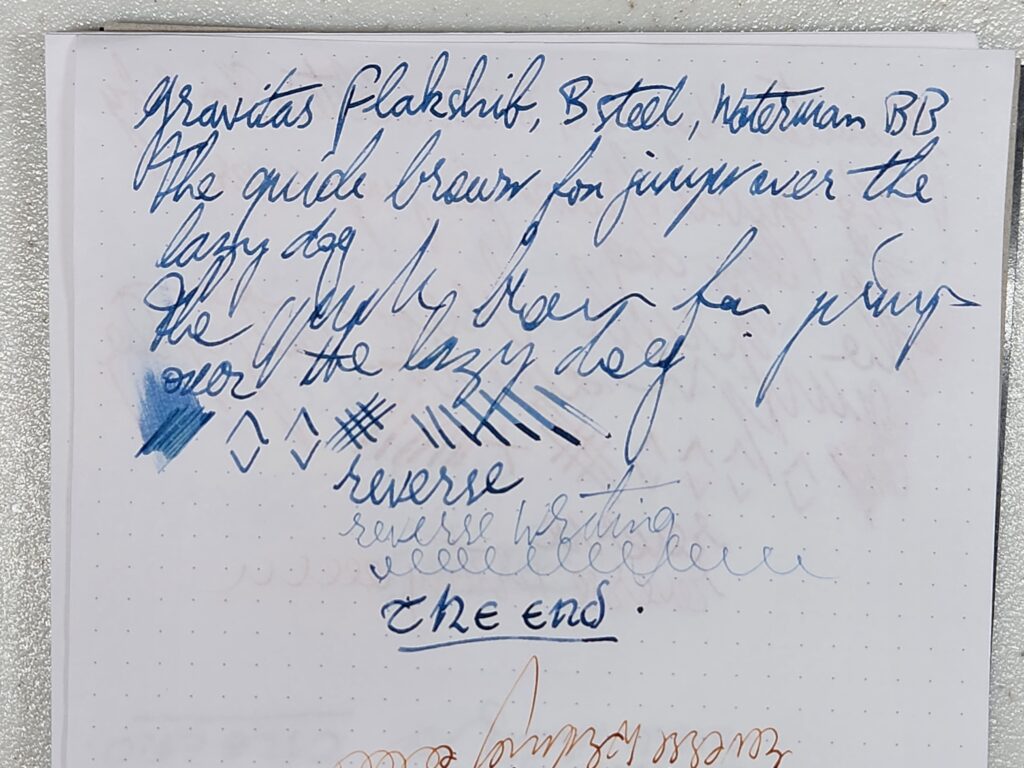 Gravitas Flakshib, B steel, Waterman BB
The quick brown fox jumps over the
lazy dog
The quick brown fox jumps
over the lazy dog
reverse
reverse writing
The end.
reverse writing